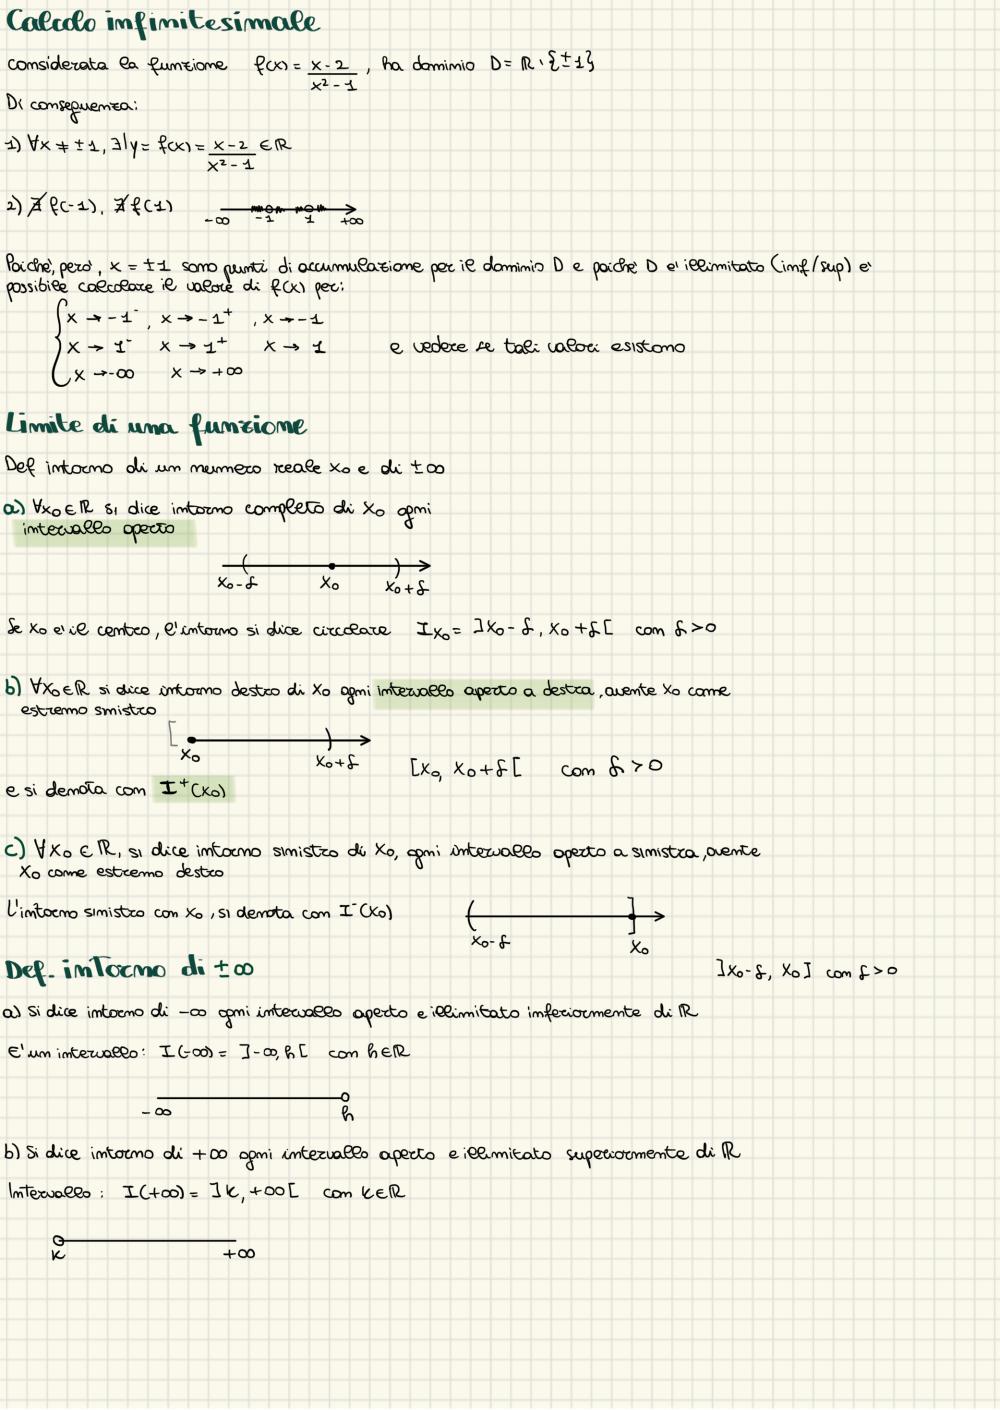 Calcolo infinitesimale
considerata la funzione f(x) = (x-2)/(x²-1), ha dominio D = ℝ \ {±1}
Di conseguenza:
1) ∀x ≠ ±1, ∃! y = f(x) = (x-2)/(x²-1) ∈ ℝ
2) ∄ f(-1), ∄ f(1)
-∞ -1 1 +∞
Poiché, però, x = ±1 sono punti di accumulazione per il dominio D e poiché D e' illimitato (inf/sup) e'
possibile calcolare il valore di f(x) per:
x → -1⁻, x → -1⁺, x → -1
x → 1⁻ x → 1⁺ x → 1 e vedere se tali valori esistono
x → -∞ x → +∞
Limite di una funzione
Def intorno di un numero reale x₀ e di ±∞
a) ∀x₀ ∈ ℝ si dice intorno completo di x₀ ogni
intervallo aperto
x₀-δ x₀ x₀+δ
Se x₀ e' il centro, l'intorno si dice circolare Ix₀ = ]x₀-δ, x₀+δ[ con δ>0
b) ∀x₀∈ℝ si dice intorno destro di x₀ ogni intervallo aperto a destra, avente x₀ come
estremo sinistro
[ x₀ x₀+δ ) [x₀, x₀+δ[ con δ>0
e si denota con I⁺(x₀)
c) ∀x₀ ∈ ℝ, si dice intorno sinistro di x₀, ogni intervallo aperto a sinistra, avente
x₀ come estremo destro
L'intorno sinistro con x₀, si denota con I⁻(x₀)
( x₀-δ x₀ ]
]x₀-δ, x₀] con δ>0
Def. intorno di ±∞
a) Si dice intorno di -∞ ogni intervallo aperto e illimitato inferiormente di ℝ
E' un intervallo: I(-∞) = ]-∞, h[ con h∈ℝ
-∞ h
b) Si dice intorno di +∞ ogni intervallo aperto e illimitato superiormente di ℝ
Intervallo: I(+∞) = ]k, +∞[ con k∈ℝ
k +∞